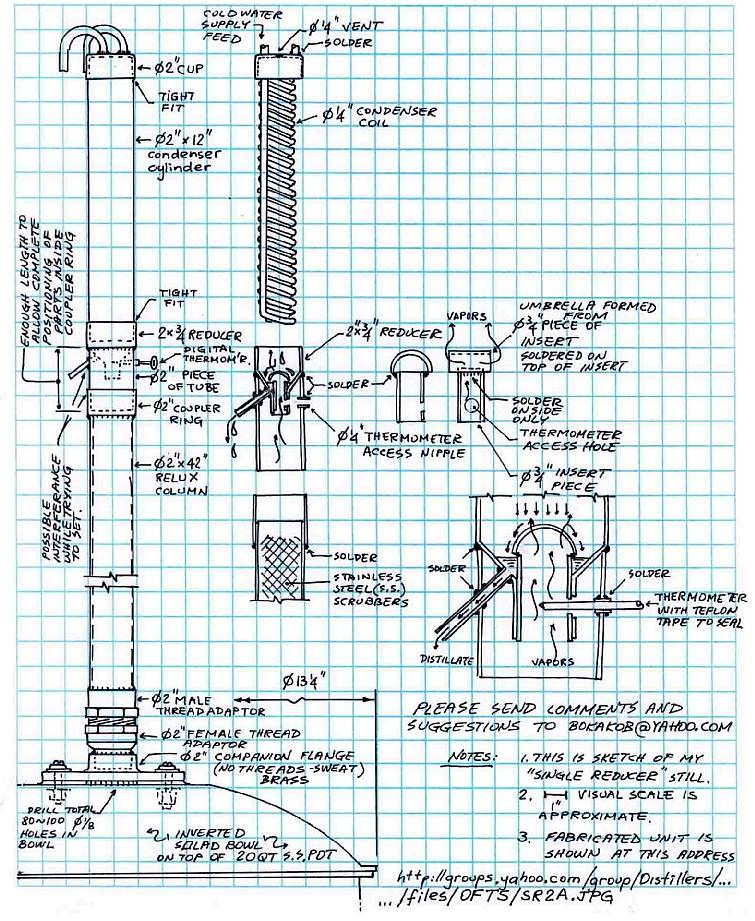 COLD WATER
SUPPLY
FEED
Ø¼" VENT
SOLDER
Ø2" CUP
TIGHT
FIT
Ø2" x 12"
condenser
cylinder
Ø¼" CONDENSER
COIL
ENOUGH LENGTH TO
ALLOW COMPLETE
POSITIONING OF
PARTS INSIDE
COUPLER RING
TIGHT
FIT
2 x ¾ REDUCER
DIGITAL
THERMOM'R.
Ø2" PIECE
OF TUBE
Ø2" COUPLER
RING
Ø2" x 42"
RELUX
COLUMN
POSSIBLE
INTERFERANCE
WHILE TRYING
TO SET.
2"x¾" REDUCER
SOLDER
Ø¼" THERMOMETER
ACCESS NIPPLE
VAPORS
UMBRELLA FORMED
FROM
Ø¾" PIECE OF
INSERT
SOLDERED ON
TOP OF INSERT
SOLDER
ON SIDE
ONLY
THERMOMETER
ACCESS HOLE
Ø¾" INSERT
PIECE
SOLDER
STAINLESS
STEEL (S.S.)
SCRUBBERS
SOLDER
SOLDER
THERMOMETER
WITH TEFLON
TAPE TO SEAL
DISTILLATE
VAPORS
Ø2" MALE
THREAD ADAPTOR
Ø2" FEMALE THREAD
ADAPTOR
Ø2" COMPANION FLANGE
(NO THREADS - SWEAT)
BRASS
Ø13¼"
DRILL TOTAL
80~100 Ø⅛
HOLES IN
BOWL
INVERTED
SALAD BOWL
ON TOP OF 20QT S.S. POT
PLEASE SEND COMMENTS AND
SUGGESTIONS TO BOKAKOB@YAHOO.COM
NOTES: 1. THIS IS SKETCH OF MY
"SINGLE REDUCER" STILL.
2. 1" VISUAL SCALE IS
APPROXIMATE.
3. FABRICATED UNIT IS
SHOWN AT THIS ADDRESS
http://groups.yahoo.com/group/Distillers/...
.../files/OFTS/SR2A.JPG